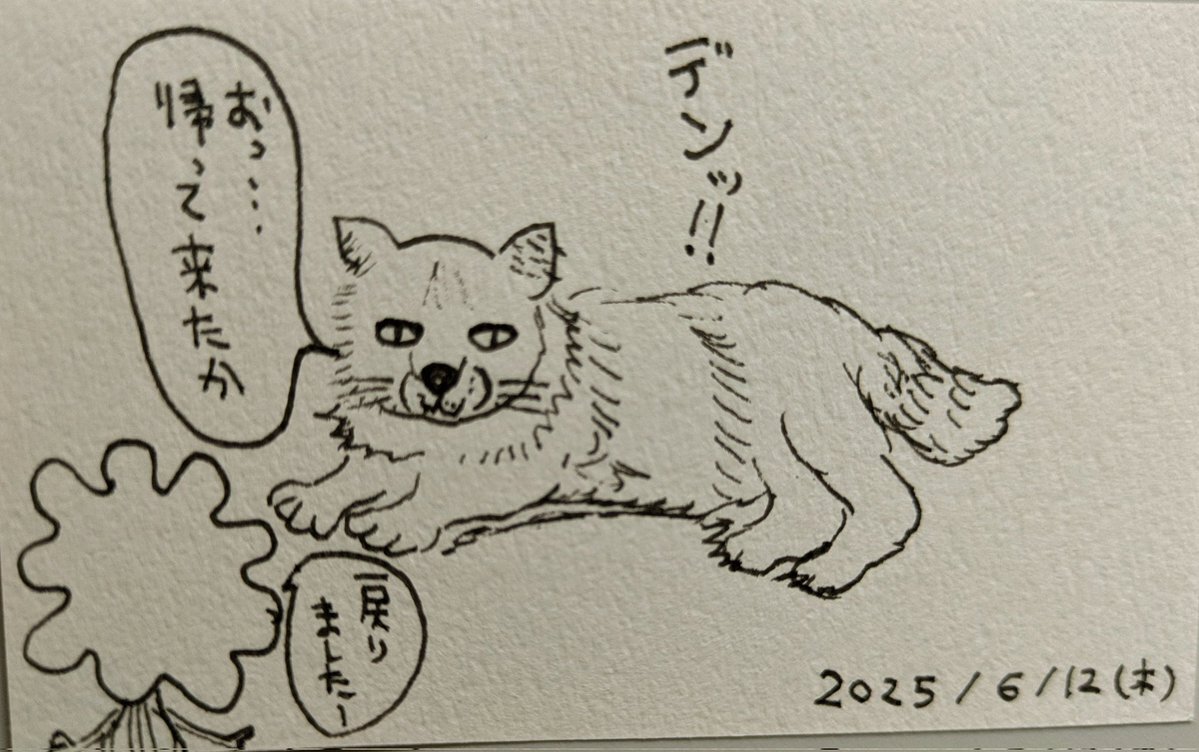 デンッ!!
おっ…
帰って来たか
戻り
ましたー
2025/6/12(木)